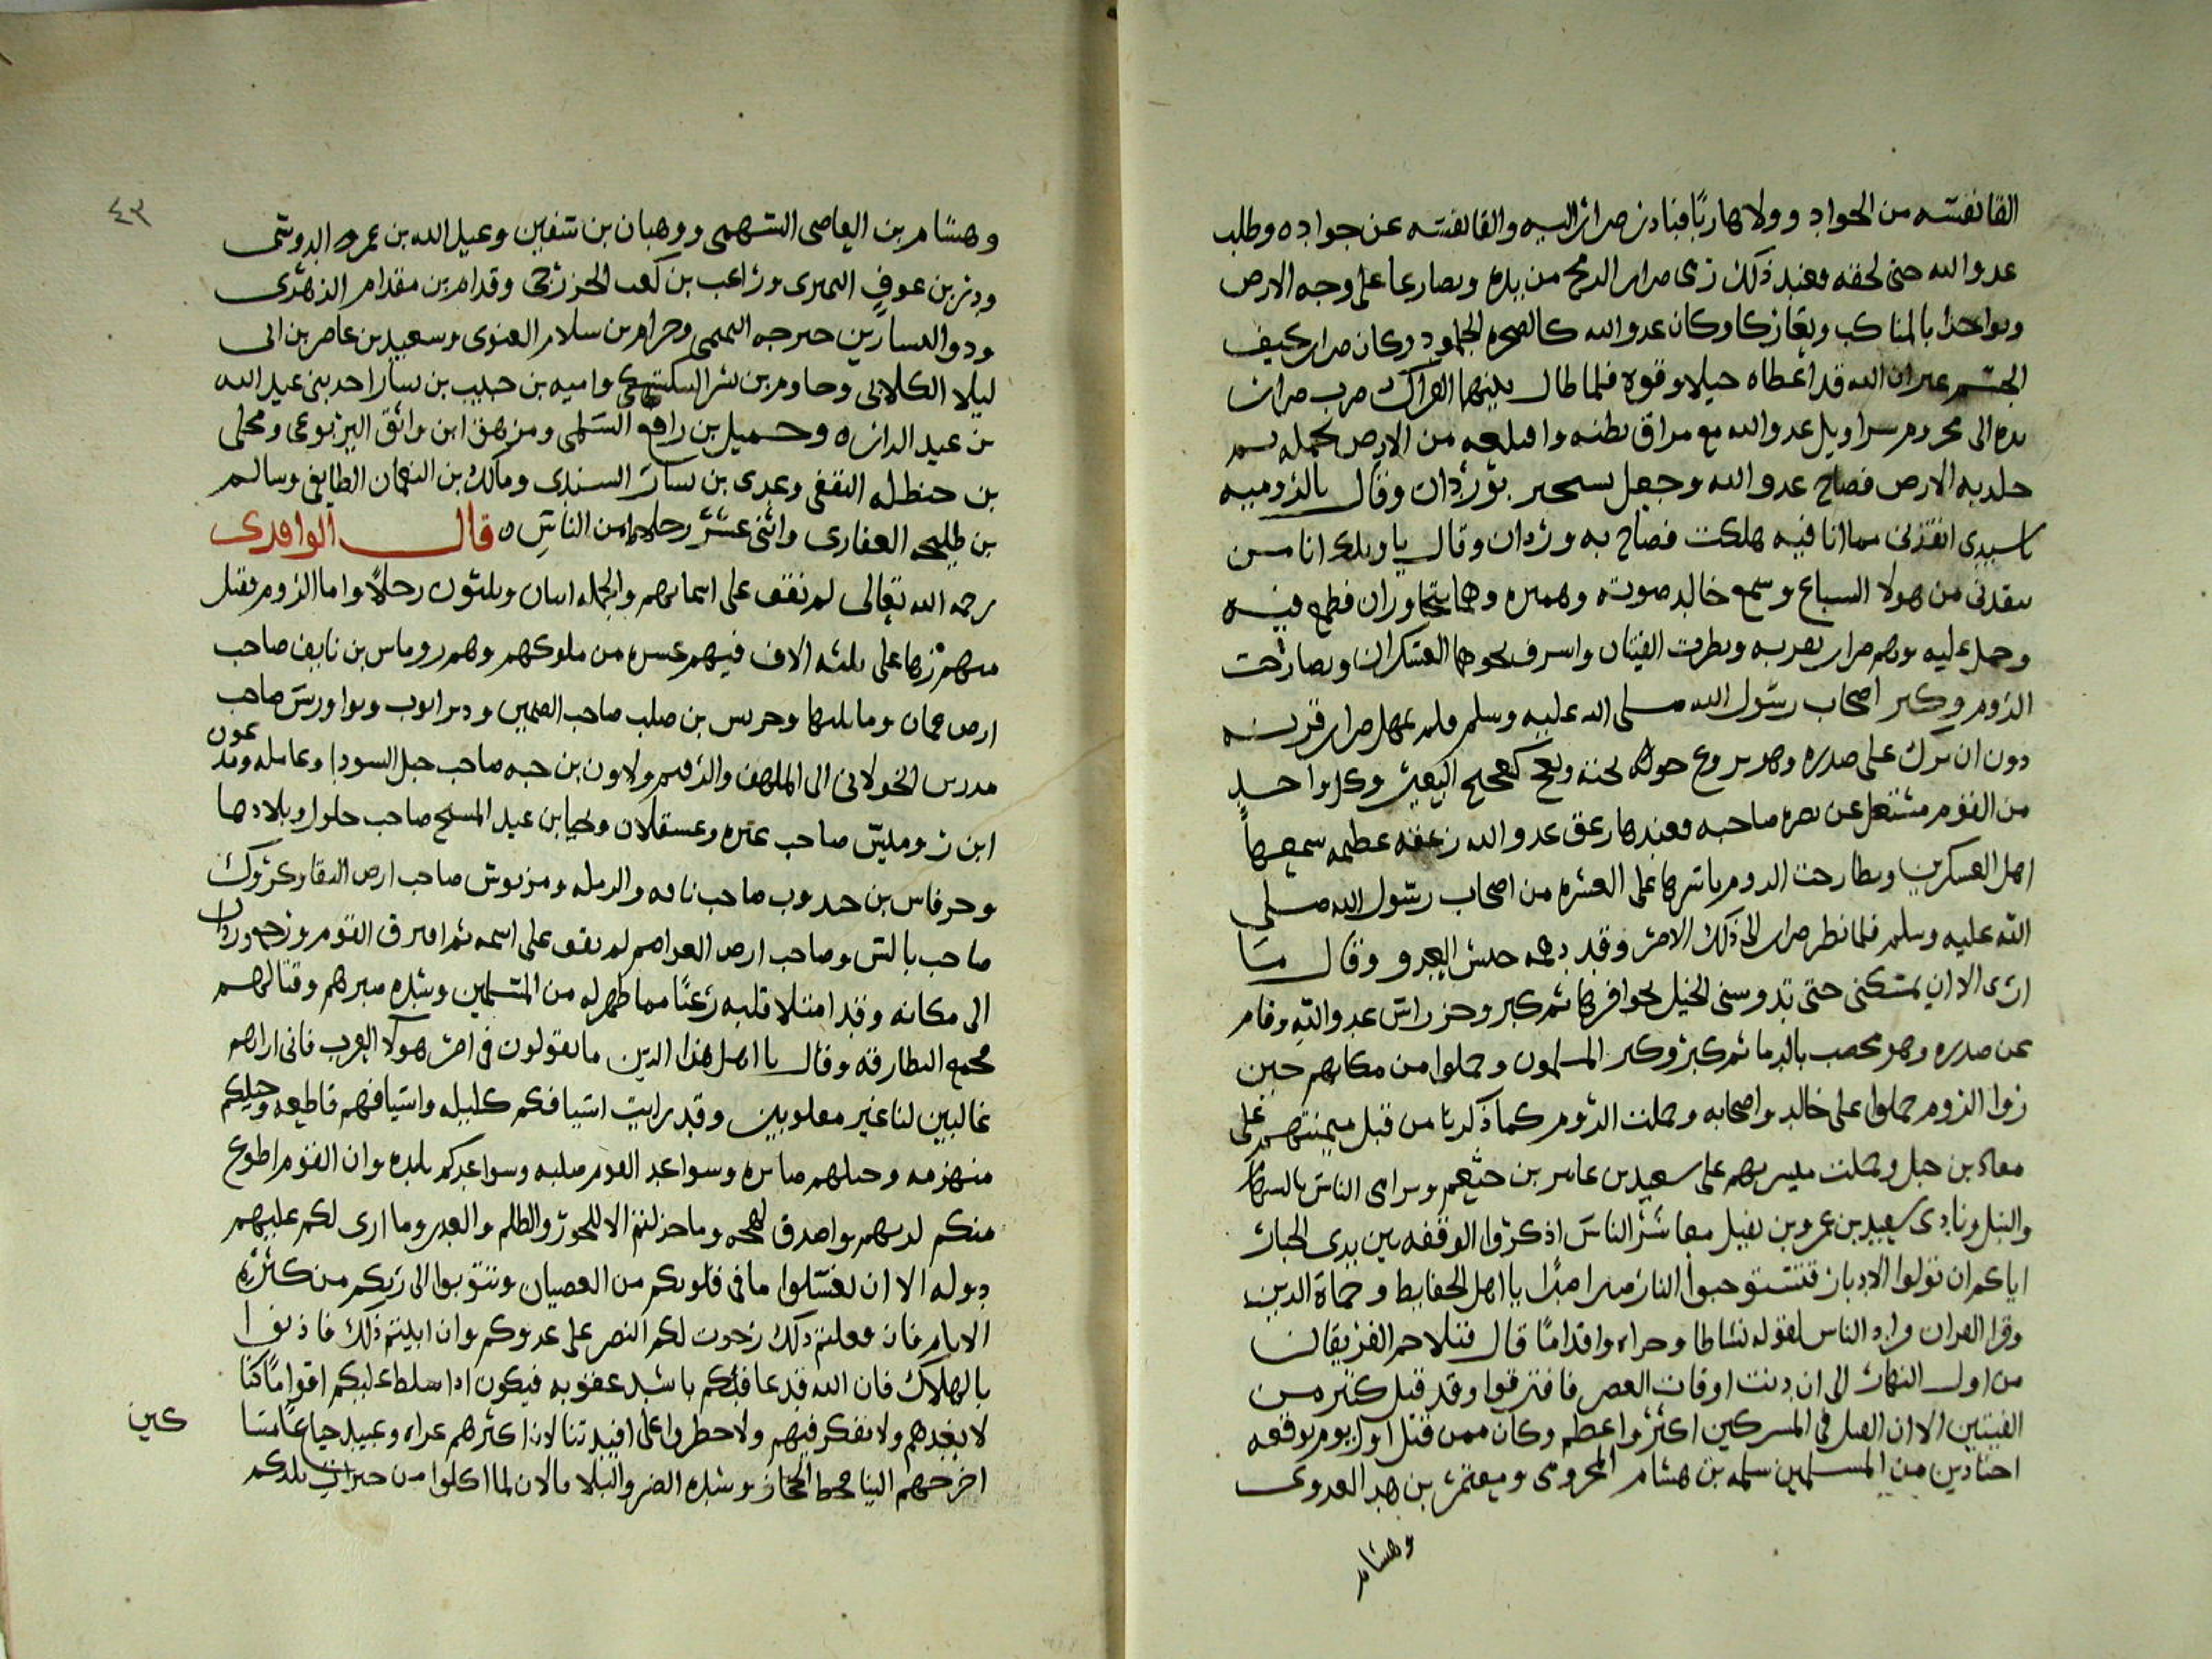 القا نفسه من الجواد وولا هاربا فبادر ضرار اليه والقا نفسه عن جواده وطلب
عدو الله حتى لحقه فعند ذلك رمى ضرار الرمح من يده وتصارعا على وجه الارض
وتواخذا بالمناكب وتعاركا وكان عدو الله كالصخره الجلمود وكان ضرار نحيف
الجسم غير ان الله قد اعطاه حيلا وقوه فلما طال بينهما العراك ضرب ضرار
يده الى محزم سراويل عدو الله مع مراق بطنه واقلعه من الارض بحمله ثم
جلد به الارض فصاح عدو الله وجعل يستجير بوردان وقال بالروميه
يا سيدي انقذني مما انا فيه هلكت فصاح به وردان وقال يا ويلك انا من
ينقذني من هولا السباع وسمع خالد صوته وهما يتحاوران فطمع فيه
وحمل عليه وهم ضرار بضربه ونظرت الفيتان واشرف نحوهما العسكران وتصارخت
الروم وكبر اصحاب رسول الله صلى الله عليه وسلم فلم يمهل ضرار قرنه
دون ان برك على صدره وهو يروع حوله تحته ويعج كعجيج البعير وكل واحد
من القوم مشتغل عن نصره صاحبه فعندها زعق عدو الله زعقه عظيمه سمعها
اهل العسكرين وتطارحت الروم باسرها على العشره من اصحاب رسول الله صلى
الله عليه وسلم فلما نظر ضرار الى ذلك الامر وقد دهمه جيش العدو وقال ما
ارى الا ان يمسكني حتى تدوسني الخيل بحوافرها ثم كبر وحز راس عدو الله وقام
عن صدره وهو مخضب بالدما ثم كبر وكبر المسلمون وحملوا من مكانهم حين
راوا الروم حملوا على خالد واصحابه وحملت الروم كما ذكرنا من قبل ميمنتهم على
معاذ بن جبل وحملت ميسرتهم على سعيد بن عامر بن خثعم وترامى الناس بالسهام
والنبل ونادى سعيد بن عمرو بن نفيل معاشر الناس اذكروا الوقفه بين يدى الجبار
اياكم ان تولوا الادبار فتستوجبوا النار صبرا صبرا يا اهل الحفايظ وحماة الدين
وقرا القران وازداد الناس لقوله نشاطا وجراه واقداما قال فتلاحم الفريقان
من اول النهار الى ان دنت اوقات العصر فافترقوا وقد قتل كثير من
الفيتين الا ان القتل فى المشركين اكثر واعظم وكان ممن قتل اول يوم بوقعه
اجنادين من المسلمين سلمه بن هشام المخزومى ومعتمر بن هبد العدوى
وهشام
٤٣
وهشام بن العاصى السهمى ووهبان بن سفين وعبد الله بن عمرو الدوسى
ودر بن عوف النميرى وراعب بن كعب الخزرجى وقدام بن مقدام الزهرى
وذو اليسار بن خرجه التميمى وحرام بن سلام الغنوى وسعيد بن عاصر بن ابى
ليلا الكلابى وحاوم بن بشر السكسكى واميه بن حبيب بن يسار احد بنى عبد الله
بن عبد الداره وحميل بن رافع السلمى ومرهق ابن واثق اليربوعى ومحلى
بن حنظله الثقفى وعدى بن يسار السندى ومالك بن النعمان الطايفى وسالم
بن طليحه الغفارى واثنى عشر رجلا من الناس ه قال الواقدى
رحمه الله تعالى لم نقف على اسمايهم والجمله اثنان وثلثون رجلا واما الروم فقتل
منهم زها على ثلثه الاف فيهم عشره من ملوكهم وهم روماس بن نايف صاحب
ارض عمان وما يليها وجريس بن صلب صاحب الصمين ودير ايوب ونوا ورس صاحب
مدرس الخولانى الى الملهف والرقيم ولاون بن حبه صاحب جبل السودا وعامله ومدعون
ابن روميس صاحب غزه وعسقلان ونحيا بن عبد المسيح صاحب حلول وبلادها
وحرفاس بن جدوب صاحب نافه والرمله ومربوش صاحب ارض البلقا وكركوك
صاحب بالس وصاحب ارض العواصم لم نقف على اسمه ثم افترق القوم ورجع وردان
الى مكانه وقد امتلا قلبه رعبا مما ظهر له من المسلمين وشده صبرهم وقتالهم
فجمع البطارقه وقال يا اهل هذا الدين ما تقولون فى امر هولا العرب فانى اراهم
غالبين لنا غير مغلوبين وقد رايت اسيافكم كليله واسيافهم قاطعه وخيلكم
منهزمه وخيلهم صابره وسواعد القوم صلبه وسواعدكم بلده وان القوم اطوع
منكم لربهم واصدق لهجه وما خذلتم الا للجور والظلم والغدر وما ارى لكم عليهم
دوله الا ان تغسلوا ما فى قلوبكم من العصيان وتتوبوا الى ربكم من كثره
الاثام فان فعلتم ذلك رجوت لكم النصر على عدوكم وان ابيتم ذلك فاذنوا
بالهلاك فان الله قد عاقبكم باشد عقوبه فيكون اذا سلط عليكم اقواما كنا
لا نعدهم ولا نفكر فيهم ولا خطروا على افيدتنا لان اكثرهم عراه وعبيد جياع عامتنا
اخرجهم الينا قحط الحجاز وشده الضر والبلا فالان لما اكلوا من خيرات بلدكم